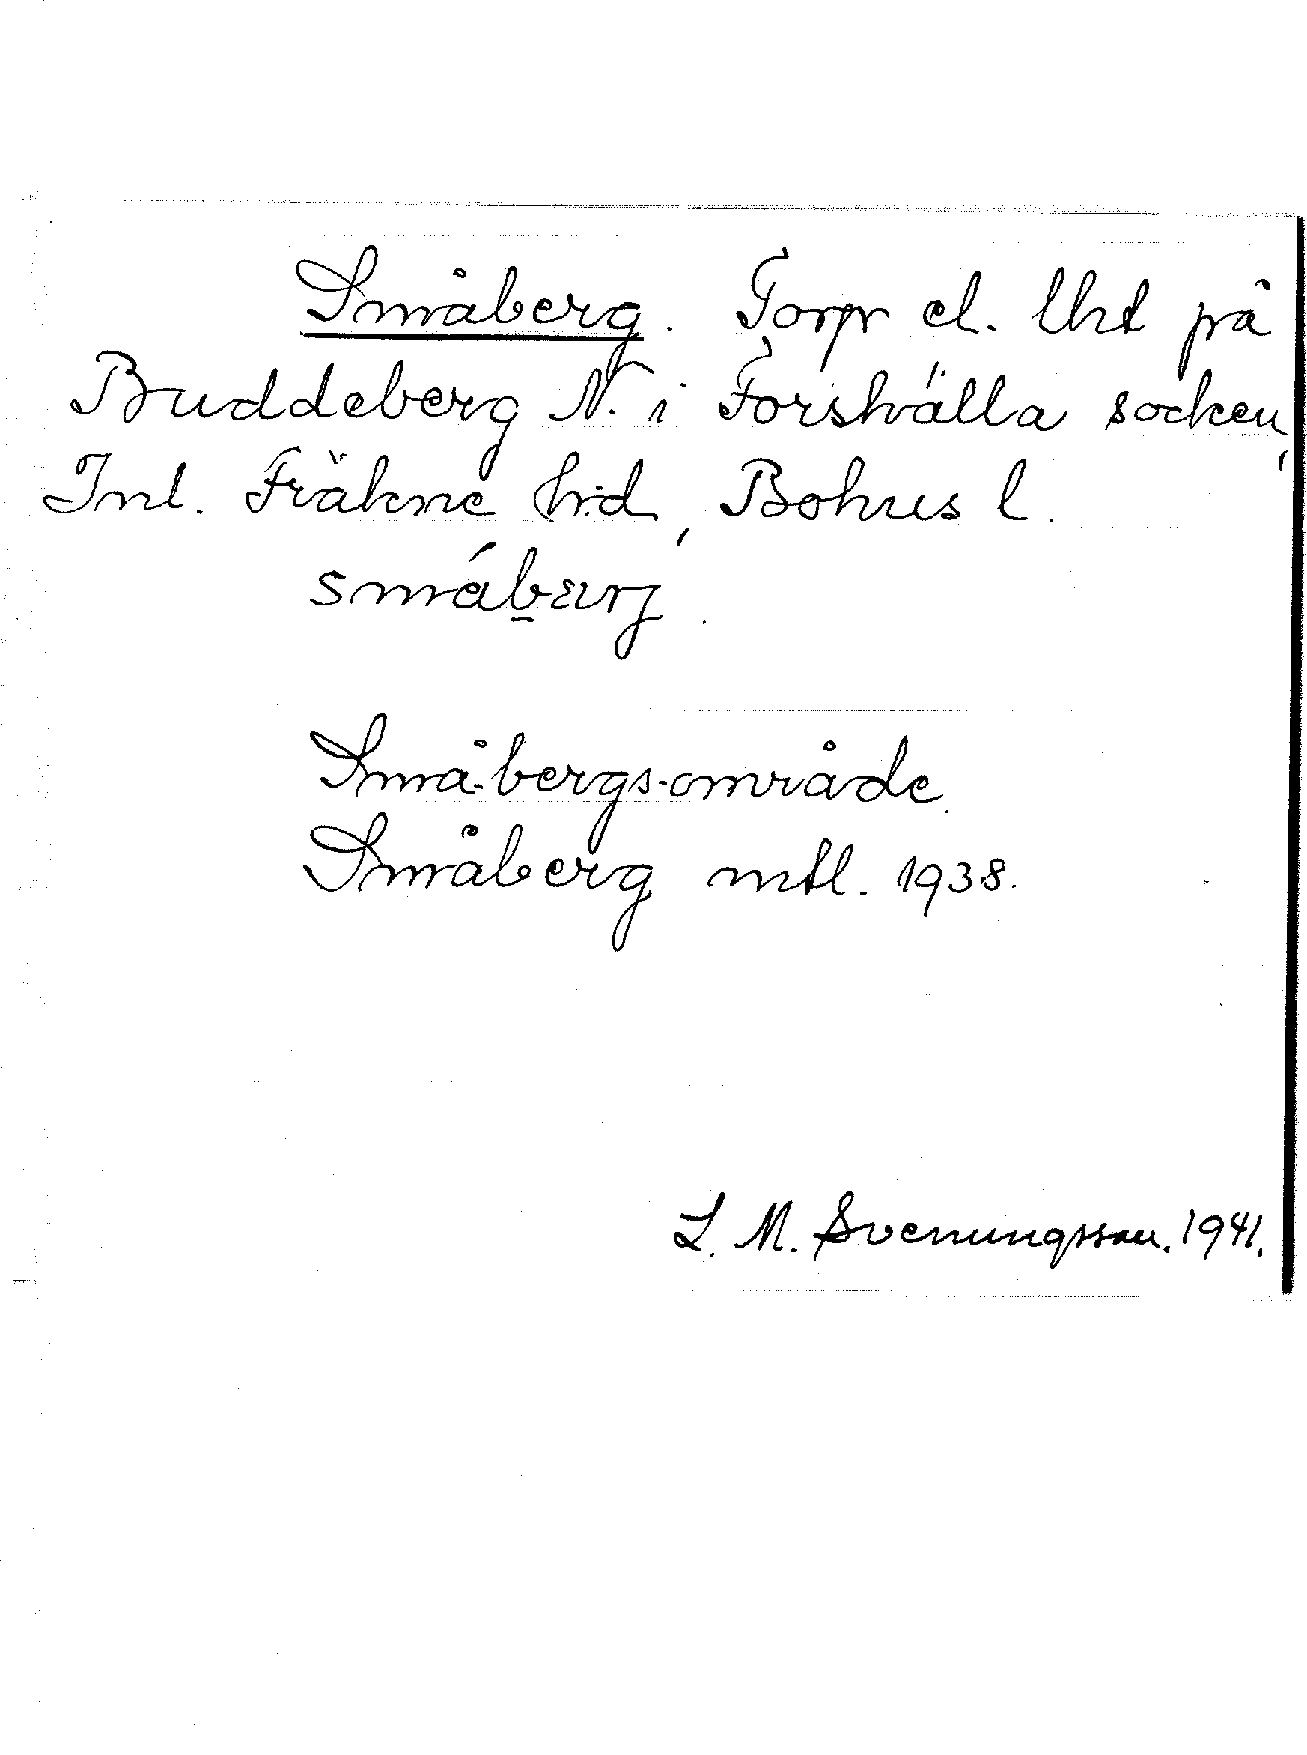 Småberg. Torp el. lht på
Buddeberg N. i Forshälla socken,
Inl. Fräkne hd, Bohus l.
småbærj
Små-bergs-område
Småberg mtl. 1938.
L. M. Svenungsson. 1941.